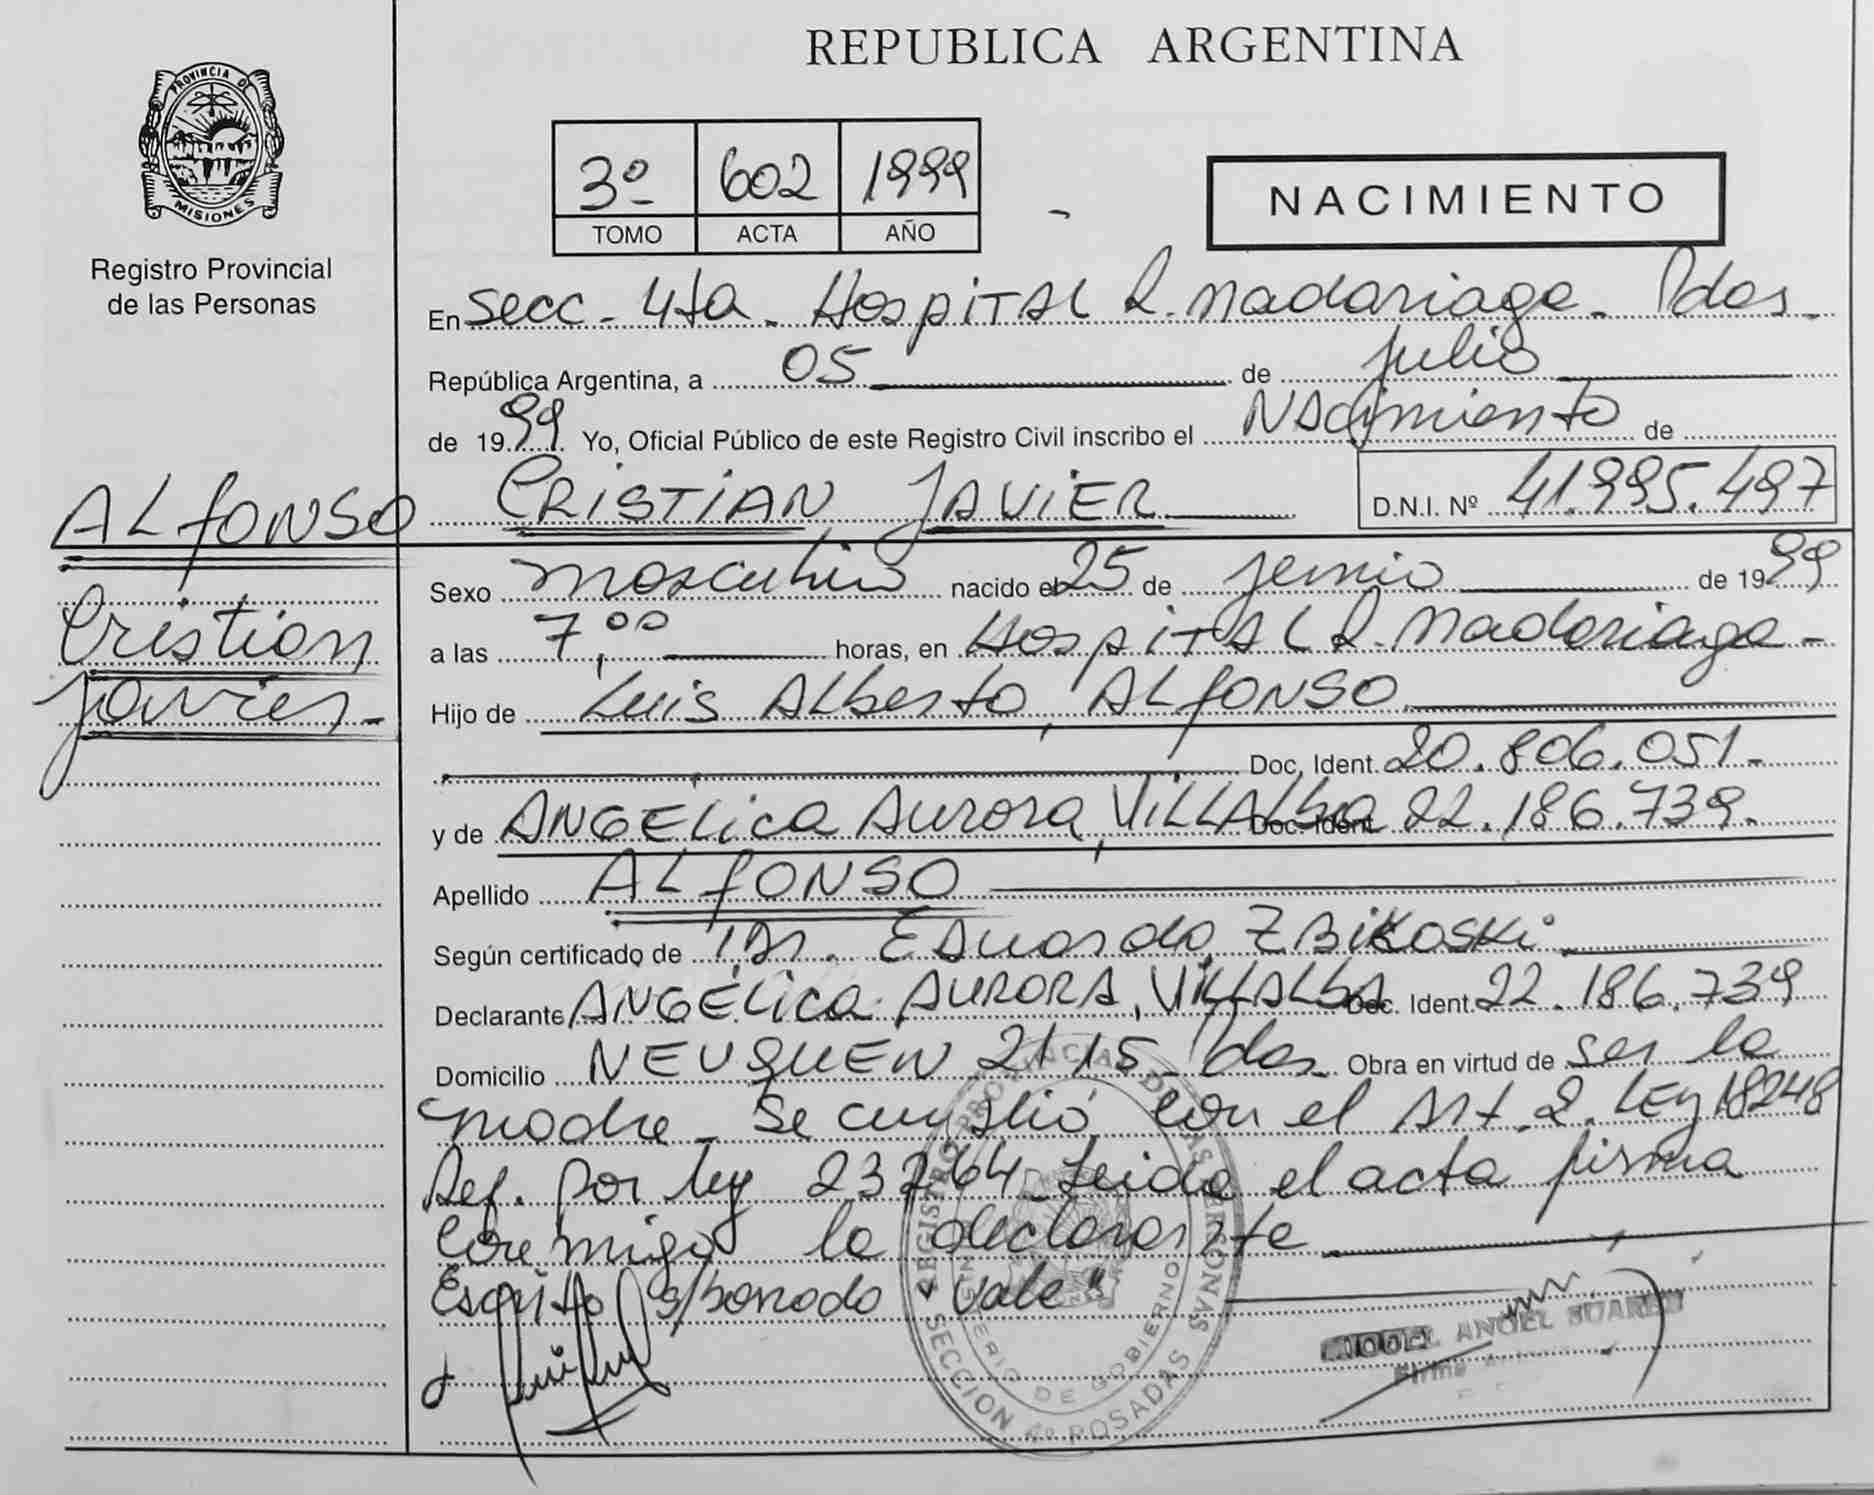 REPUBLICA ARGENTINA
PROVINCIA DE
MISIONES
Registro Provincial
de las Personas
3º 602 1999
TOMO ACTA AÑO
NACIMIENTO
En Secc. 4ta. Hospital R. Madariaga. Pdas.
República Argentina, a 05 de julio
de 1999 Yo, Oficial Público de este Registro Civil inscribo el Nacimiento de
CRISTIAN JAVIER D.N.I. Nº 41.995.497
ALFONSO
Cristian
Javier
Sexo masculino nacido el 25 de junio de 1999
a las 7,00 horas, en Hospital R. Madariaga
Hijo de Luis Alberto, ALFONSO
Doc. Ident. 20.806.051.
y de ANGELica Aurora, VILLALba Doc. Ident. 22.186.739.
Apellido ALFONSO
Según certificado de Dr. Eduardo ZBIKOSKi
Declarante ANGELica AURORA, VILLALba Doc. Ident. 22.186.739
Domicilio NEUQUEN 2115 Pdas. Obra en virtud de ser la
madre. Se cumplió con el Art. 2. LEy 18248
Ref. por ley 23264. Leida el acta firma
conmigo la declarante
Escrito s/borrado "Vale"
REGISTRO PROVINCIAL DE LAS PERSONAS
MINISTERIO DE GOBIERNO
SECCION 4º POSADAS
MIGUEL ANGEL SUAREZ
Firma